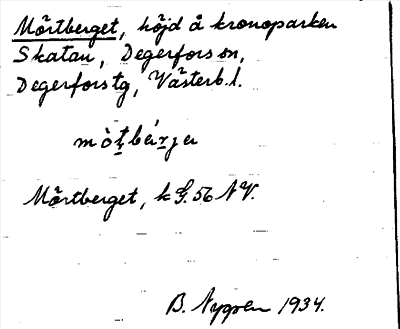 Mörtberget, höjd å kronoparken
Skatan, Degerfors sn,
Degerfors tg, Västerb. l.
mö̀ṭbárja
Mörtberget, k G. 56 NV.
B. Nygren 1934.